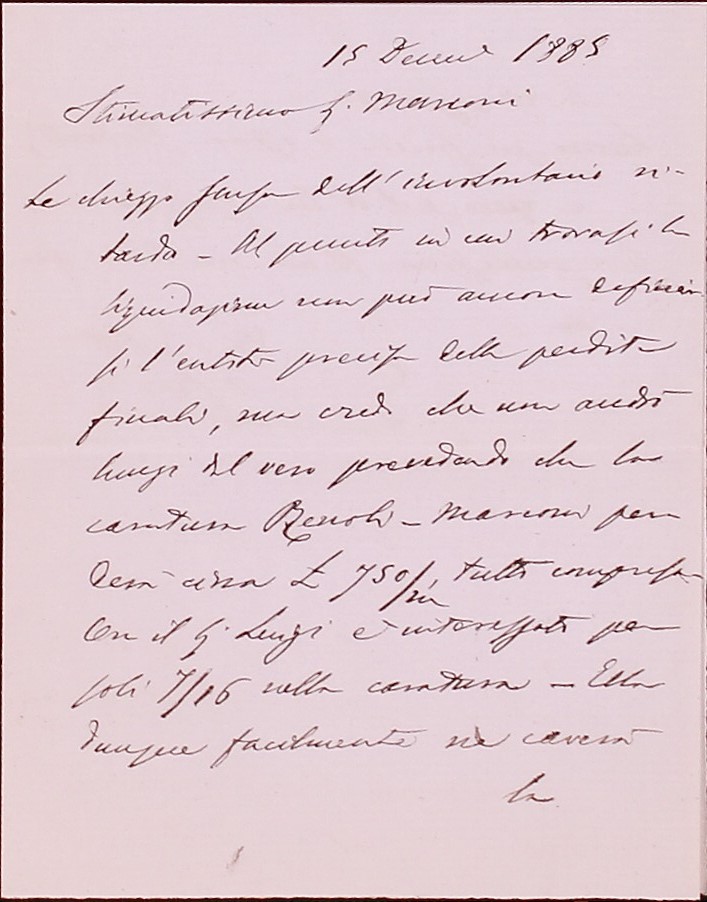 15 Decembre 1885
Stimatissimo S. Marconi
Le chieggo scusa dell'involontario ri-
tardo - Al punto in cui trovasi la
liquidazione non può ancora definir
si l'entità precisa della perdita
finale, ma credo che non andrò
lungi dal vero prevedendo che la
caratura Renoli - Marconi per
derà circa £ 750/m tutto compreso
Ora il S. Luigi è interessato per
soli 7/16 nella caratura - Ella
dunque facilmente ne caverà
la